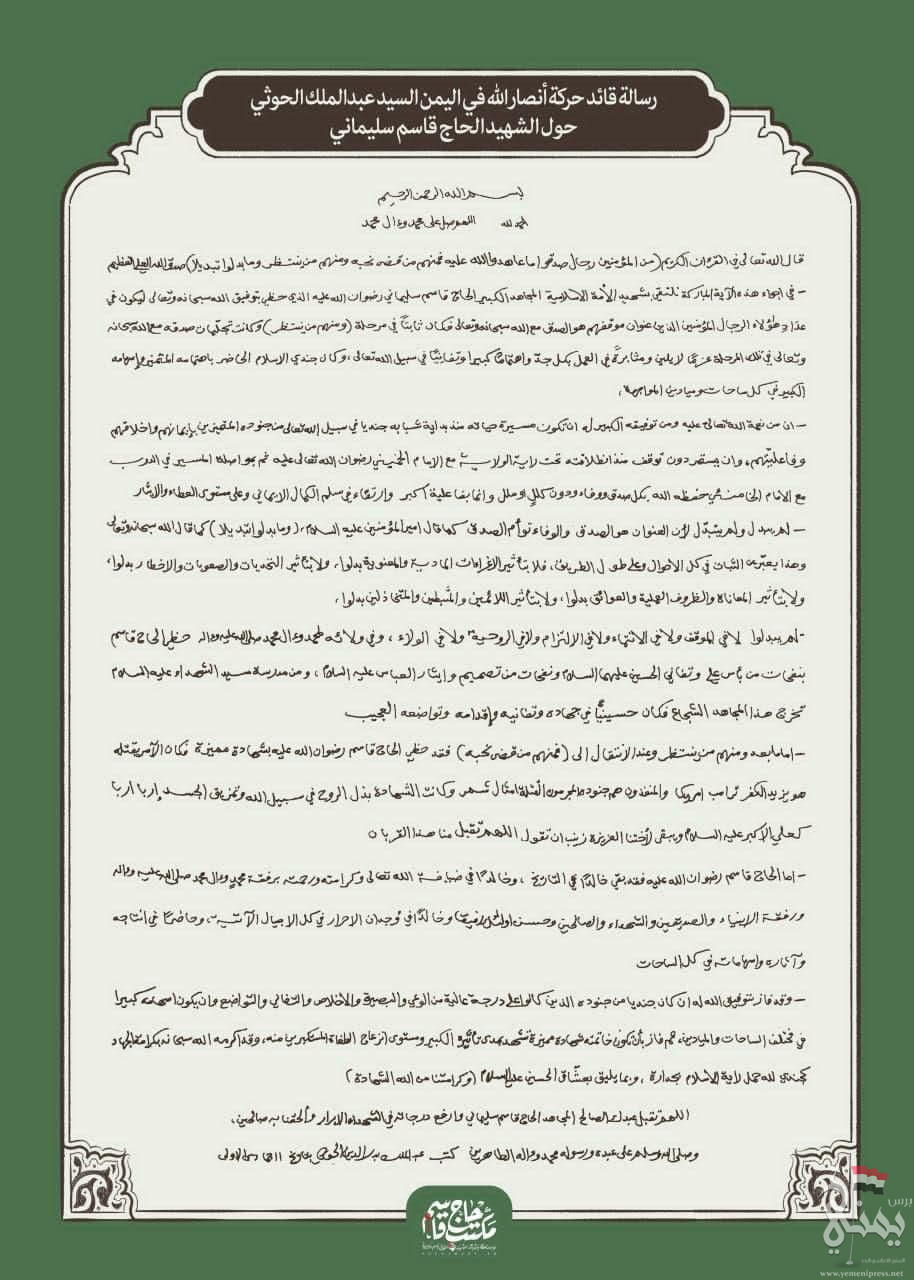 رسالة قائد حركة أنصار الله في اليمن السيد عبدالملك الحوثي
حول الشهيد الحاج قاسم سليماني
بسم الله الرحمن الرحيم
الحمد لله اللهم صل على محمد وءال محمد
قال الله تعالى في القرءان الكريم (من المؤمنين رجال صدقوا ما عاهدوا الله عليه فمنهم من قضى نحبه ومنهم من ينتظر وما بدلوا تبديلا) صدق الله العلي العظيم
– في أجواء هذه الآية المباركة نلتقي بشهيد الأمة الإسلامية المجاهد الكبير الحاج قاسم سليماني رضوان الله عليه الذي حظي بتوفيق الله سبحانه وتعالى ليكون في
عداد هؤلاء الرجال المؤمنين الذين عنوان موقفهم هو الصدق مع الله سبحانه وتعالى فكان ثابتاً في مرحلة (ومنهم من ينتظر) وكانت تجليات صدقه مع الله سبحانه
وتعالى في تلك المرحلة عزماً لا يلين ومثابرةً في العمل بكل جدّ واهتماماً كبيراً وتفانياً في سبيل الله تعالى، وكان جندي الاسلام الحاضر باهتمامه المتميز وإسهامه
الكبير في كل ساحات وميادين المواجهة،
– ان من نعمة الله تعالى عليه ومن توفيقه الكبير له ان تكون مسيرة حياته منذ بداية شبابه جندياً في سبيل الله تعالى من جنوده المتميزين بإيمانهم واخلاقهم
وفاعليتهم، وان يستمر دون توقف منذ انطلاقته تحت راية الولاية مع الإمام الخميني رضوان الله تعالى عليه ثم بمواصلة المسير في الدرب
مع الامام الخامنئي حفظه الله بكل صدق ووفاء ودون كللٍ او ملل وانما بفاعلية أكبر وارتقاء في سلم الكمال الإيماني وعلى مستوى العطاء والايثار
– لم يبدل ولم يتبدّل لأن العنوان هو الصدق والوفاء توأم الصدق كما قال امير المؤمنين عليه السلام، (وما بدلوا تبديلا) كما قال الله سبحانه وتعالى
وهذا يعبّر عن الثبات في كل الاحوال وعلى طول الطريق، فلا بتأثير الإغراءات المادية والمعنوية بدلوا، ولا بتأثير التحديات والصعوبات والاخطار بدلوا،
ولا بتأثير المعاناة والظروف العملية والعوائق بدلوا، ولا بتأثير اللائمين والمثبطين والمتخاذلين بدلوا،
– لم يبدلوا لا في الموقف ولا في الانتماء ولا في الالتزام ولا في الروحية ولا في الولاء، وفي ولائه لمحمد وءال محمد صلى الله عليه وءاله حظي الحاج قاسم
بنفحات من بأس علي وتفاني الحسين عليهما السلام ونفحات من تصميم وإيثار العباس عليه السلام، ومن مدرسة سيد الشهداء عليه السلام
تخرج هذا المجاهد الشجاع فكان حسينيًّا في جهاده وتفانيه وإقدامه وتواضعه العجيب
– اما ما بعد ومنهم من ينتظر وعند الانتقال الى (فمنهم من قضى نحبه) فقد حظي الحاج قاسم رضوان الله عليه بشهادة مميزة فكان الآمر بقتله
هو يزيد الكفر ترامب امريكا والمنفذون هم جنوده المجرمون القتلة امثال شمر وكانت الشهادة بذل الروح في سبيل الله وتمزيق الجسد إربا اربا
كعلي الاكبر عليه السلام وبقي لأختنا العزيزة زينب ان تقول اللهم تقبل منا هذا القربان
– اما الحاج قاسم رضوان الله عليه فقد بقي خالداً في التاريخ، وخالداً في ضيافة الله تعالى وكرامته ورحمته برفقة محمدٍ وءال محمد صلى الله عليه وءاله
ورفقة الانبياء والصديقين والشهداء والصالحين وحسن اولئك رفيقا وخالداً في وجدان الاحرار في كل الاجيال الآتية، وحاضراً في انتاجه
وآثاره وإسهاماته في كل الساحات
– وقد فاز بتوفيق الله له ان كان جندياً من جنوده الذين كانوا على درجة عالية من الوعي والبصيرة والاخلاص والتفاني والتواضع وان يكون اسهامه كبيراً
في مختلف الساحات والميادين، ثم فاز بأن تكون خاتمته شهادة مميزة تشهد بمدى تأثيره الكبير ومستوى انزعاج الطغاة المستكبرين منه، وقد اكرمه الله سبحانه بكرامة الجهاد
كجندي لله حمل راية الاسلام بجدارة، وبما يليق بعشّاق الحسين عليه السلام (وكرامتنا من الله الشهادة)
اللهم تقبل عبدك الصالح المجاهد الحاج قاسم سليماني وارفع درجاته في الشهداء الابرار وألحقنا به صالحين،
وصلى الله وسلم على عبده ورسوله محمد وءاله الطاهرين كتب عبدالملك بدرالدين الحوثي بتاريخ ١١ جمادى الاولى
مكتب حاج قاسم
يمني برس
www.yemenipress.net